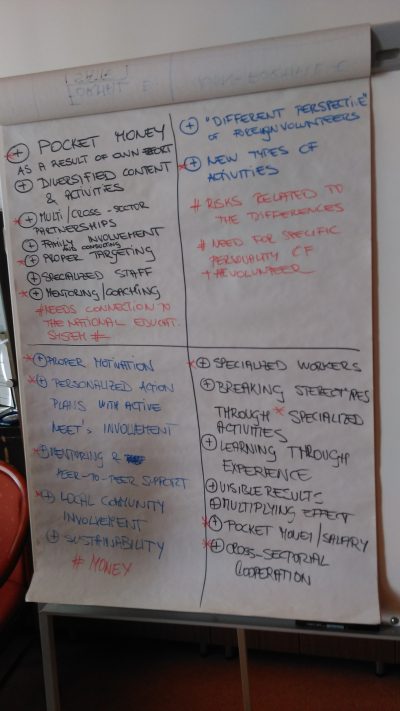 ⊕ POCKET MONEY
AS A RESULT OF OWN EFFORT
⊕ DIVERSIFIED CONTENT
& ACTIVITIES
*⊕ MULTI/CROSS-SECTOR
PARTNERSHIPS
⊕ FAMILY INVOLVEMENT
AND CONSULTING
*⊕ PROPER TARGETING
⊕ SPECIALIZED STAFF
*⊕ MENTORING/COACHING
# NEEDS CONNECTION TO
THE NATIONAL EDUCAT.
SYSTEM #
⊕ "DIFFERENT PERSPECTIVE"
OF FOREIGN VOLUNTEERS
*⊕ NEW TYPES OF
ACTIVITIES
# RISKS RELATED TO
THE DIFFERENCES
# NEED FOR SPECIFIC
PERSONALITY OF
VOLUNTEER
*⊕ PROPER MOTIVATION
*⊕ PERSONALIZED ACTION
PLANS WITH ACTIVE
NEET'S INVOLVEMENT
*⊕ MENTORING &
PEER-TO-PEER SUPPORT
*⊕ LOCAL COMMUNITY
INVOLVEMENT
⊕ SUSTAINABILITY
# MONEY
*⊕ SPECIALIZED WORKERS
⊕ BREAKING STEREOTYPES
THROUGH * SPECIALIZED
ACTIVITIES
⊕ LEARNING THROUGH
EXPERIENCE
⊕ VISIBLE RESULTS
⊕ MULTIPLYING EFFECT
*⊕ POCKET MONEY/SALARY
*⊕ CROSS-SECTORIAL
COOPERATION